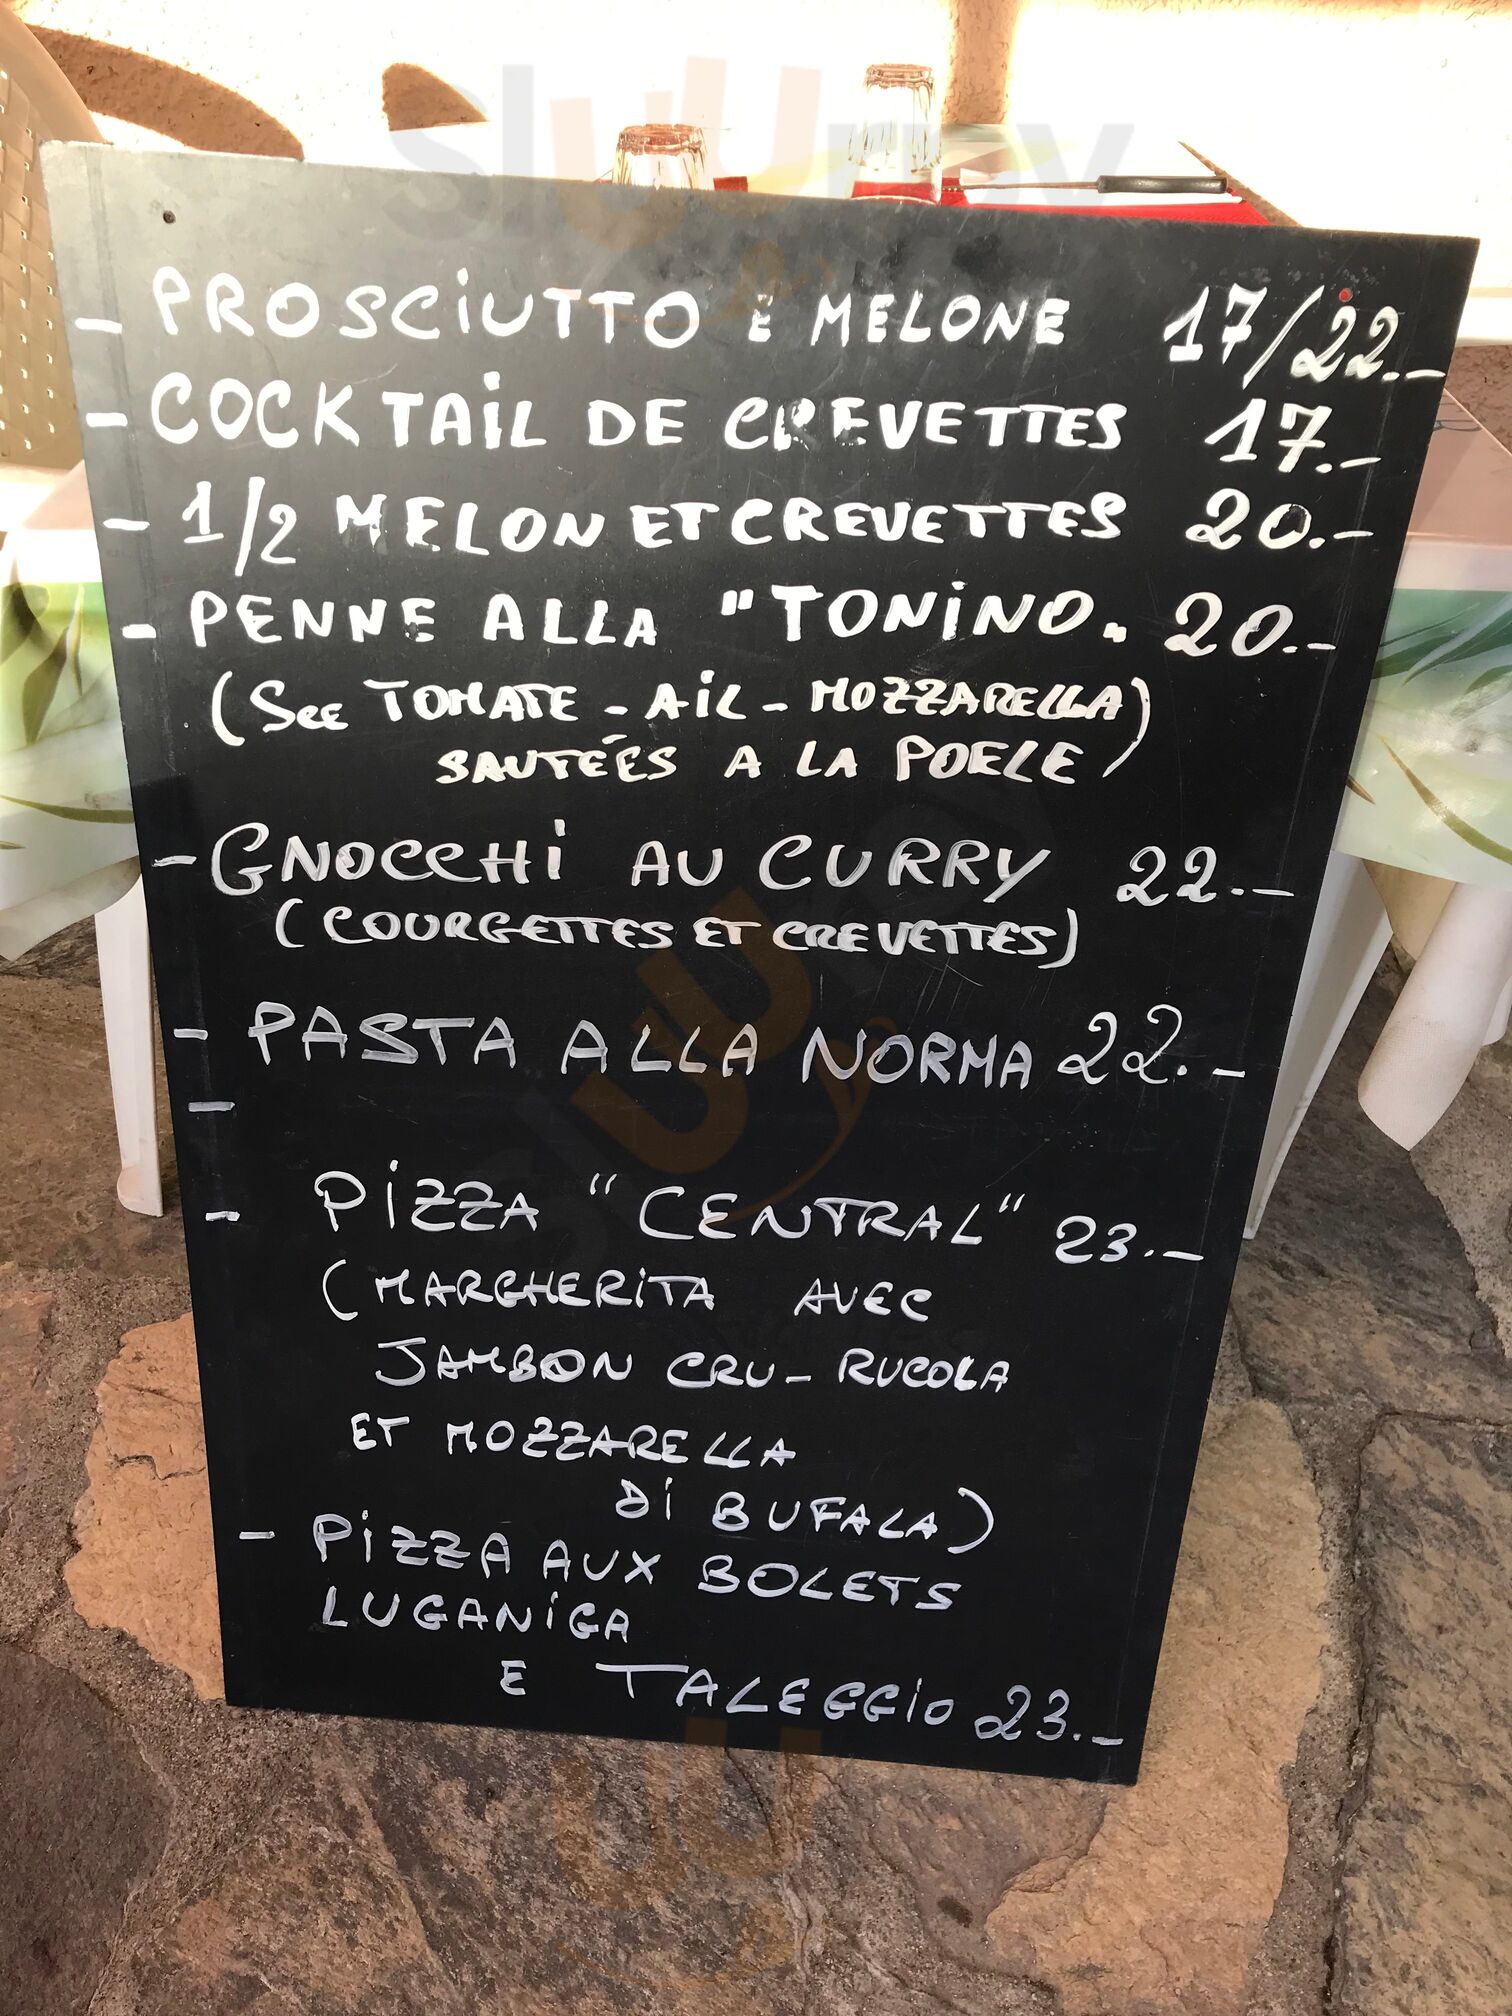 sluurpy
- PROSCIUTTO E MELONE 17/22.-
- COCKTAIL DE CREVETTES 17.-
- 1/2 MELON ET CREVETTES 20.-
- PENNE ALLA "TONINO" 20.-
(SCE TOMATE - AIL - MOZZARELLA)
SAUTÉES A LA POELE)
- GNOCCHI AU CURRY 22.-
(COURGETTES ET CREVETTES)
- PASTA ALLA NORMA 22.-
-
- PIZZA "CENTRAL" 23.-
(MARGHERITA AVEC
JAMBON CRU - RUCOLA
ET MOZZARELLA
DI BUFALA)
- PIZZA AUX BOLETS
LUGANIGA
E TALEGGIO 23.-